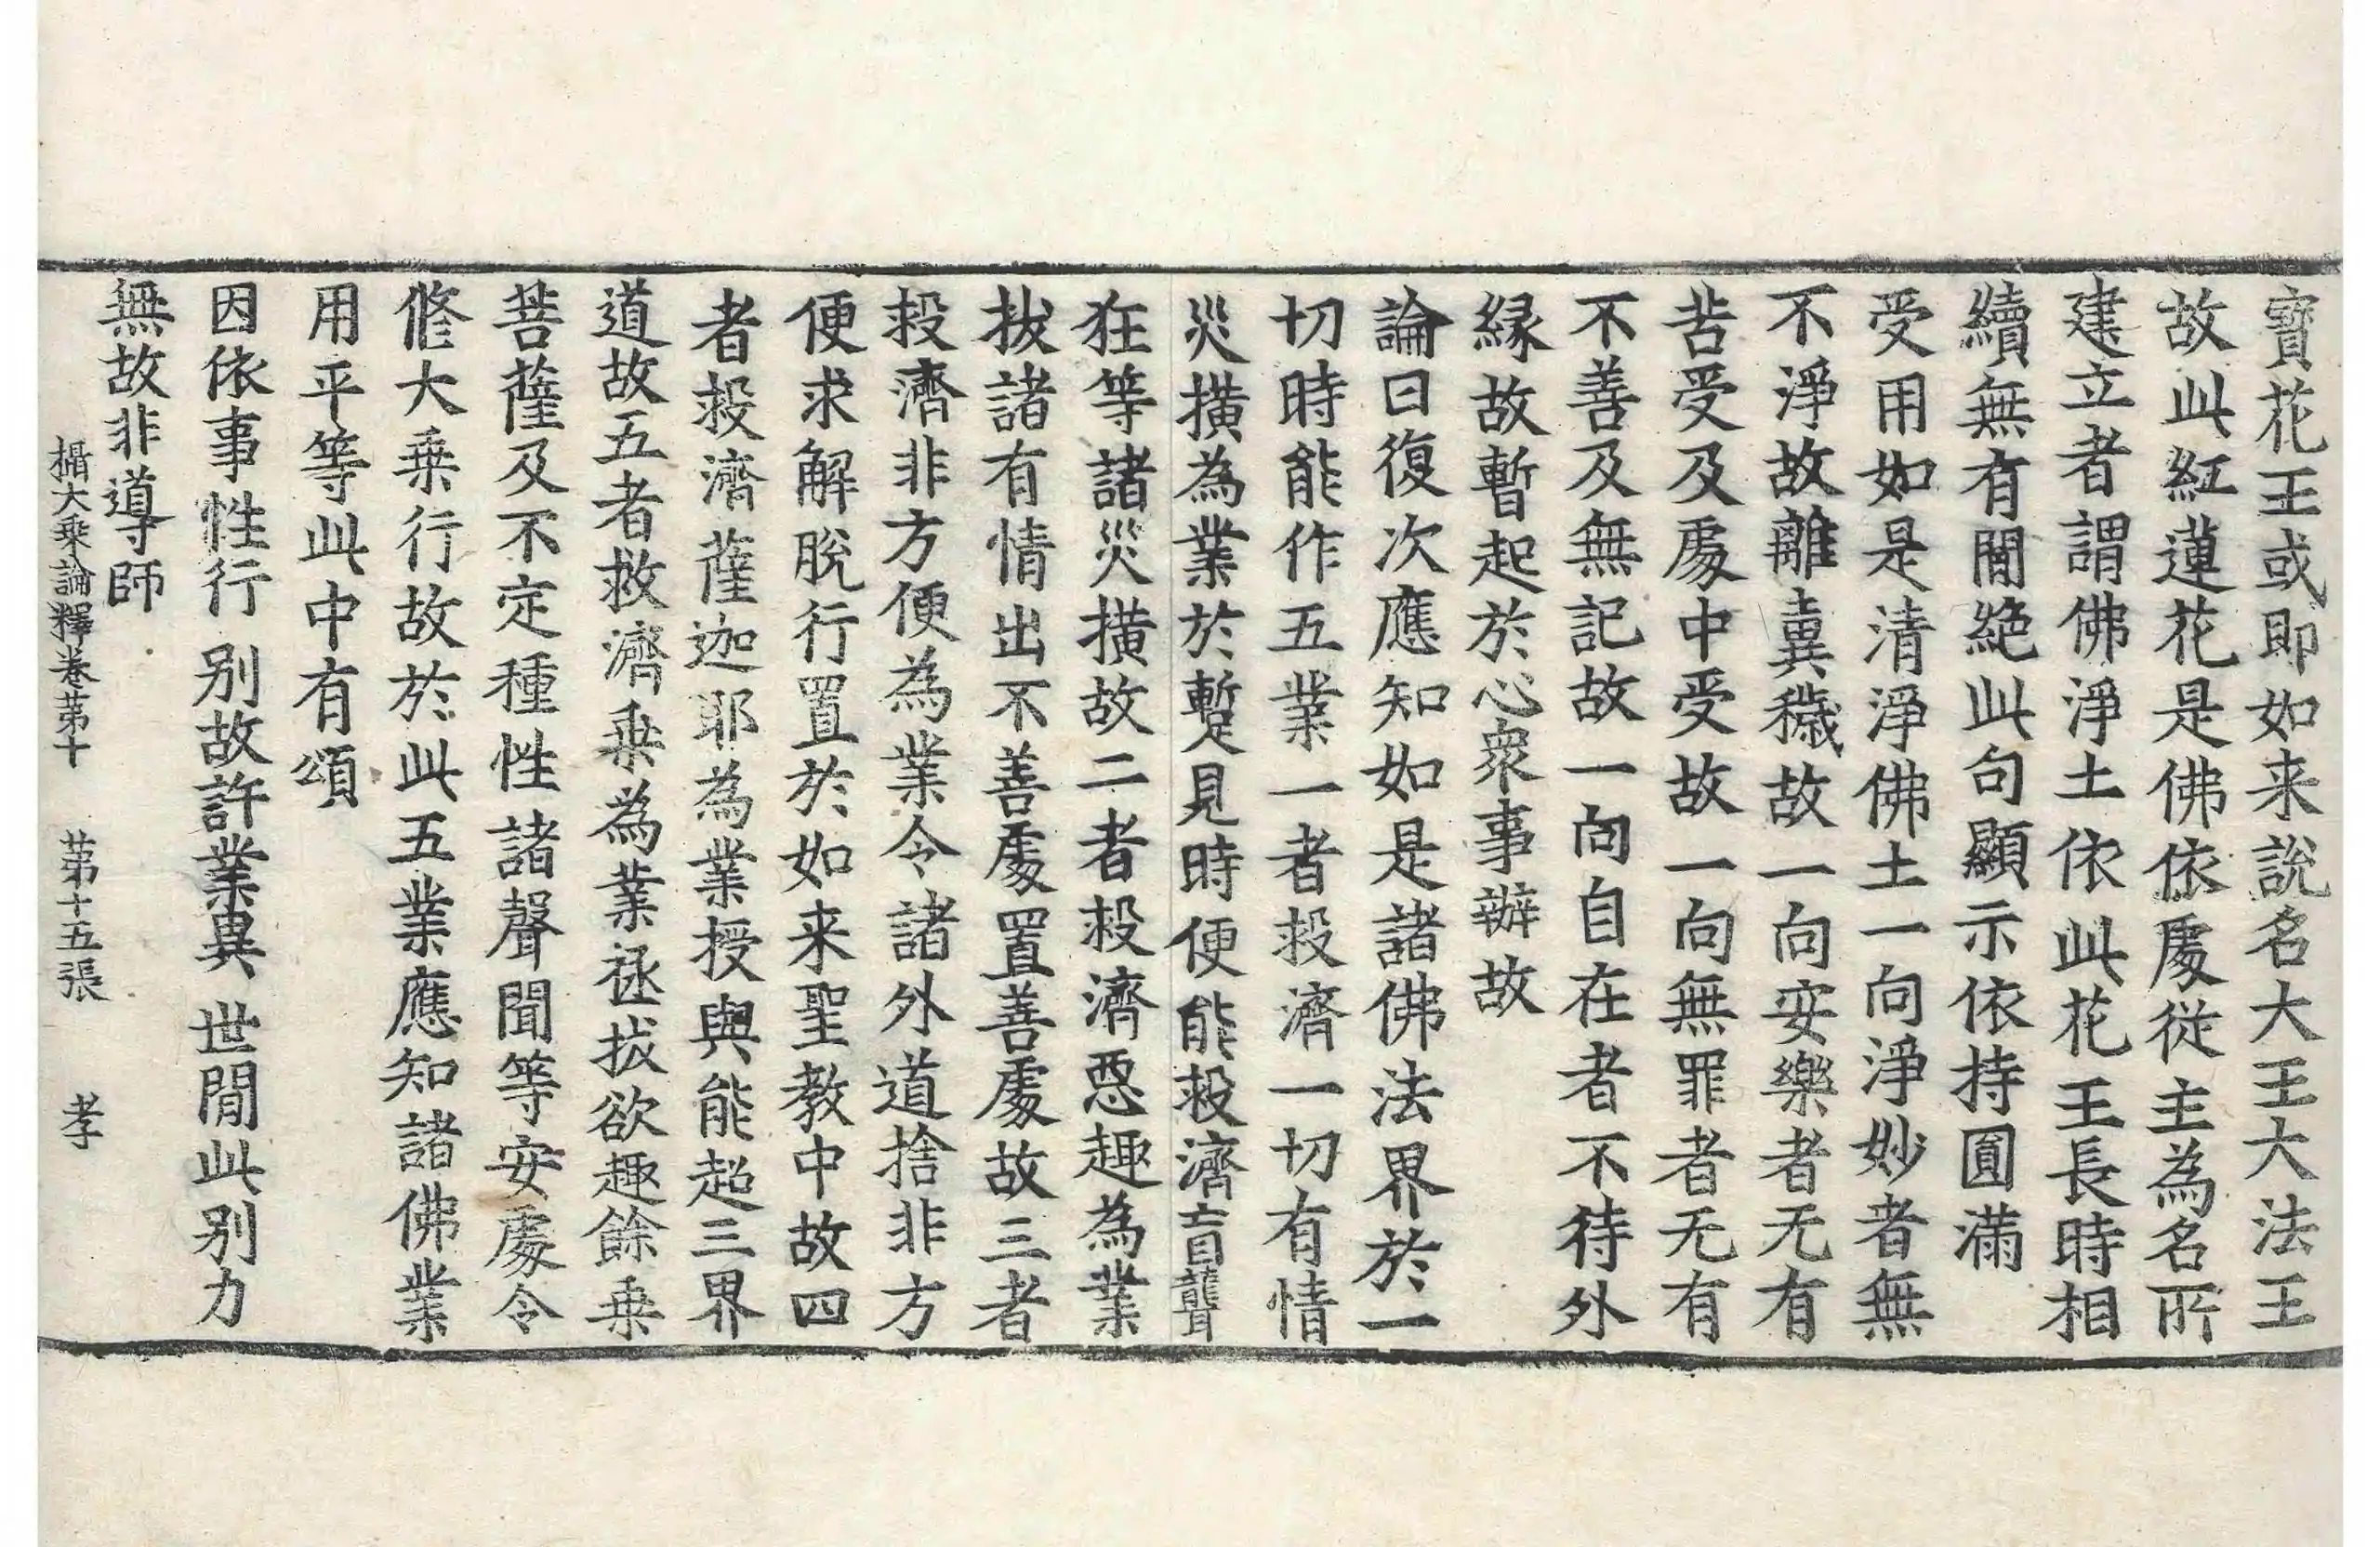 寶花王或即如来說名大王大法王
故此紅蓮花是佛依處從主為名所
建立者謂佛淨土依此花王長時相
續無有閒絶此句顯示依持圓滿
受用如是清淨佛土一向淨妙者無
不淨故離糞穢故一向安樂者无有
苦受及處中受故一向無罪者无有
不善及無記故一向自在者不待外
緣故暫起於心衆事辦故
論曰復次應知如是諸佛法界於一
切時能作五業一者救濟一切有情
災橫為業於蹔見時便能救濟盲聾
狂等諸災橫故二者救濟惡趣為業
拔諸有情出不善處置善處故三者
救濟非方便為業令諸外道捨非方
便求解脫行置於如来聖教中故四
者救濟薩迦耶為業授與能超三界
道故五者救濟乗為業拯拔欲趣餘乗
菩薩及不定種性諸聲聞等安處令
修大乗行故於此五業應知諸佛業
用平等此中有頌
因依事性行 別故許業異 世閒此別力
無故非導師
攝大乗論釋卷第十 第十五張 孝